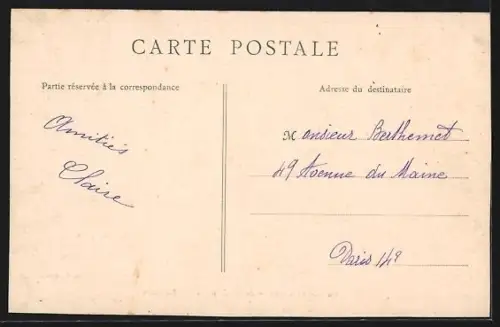 CARTE POSTALE
Partie réservée à la correspondance
Adresse du destinataire
Amitiés
Claire
Monsieur Berthemet
49 Avenue du Maine
Paris 14e